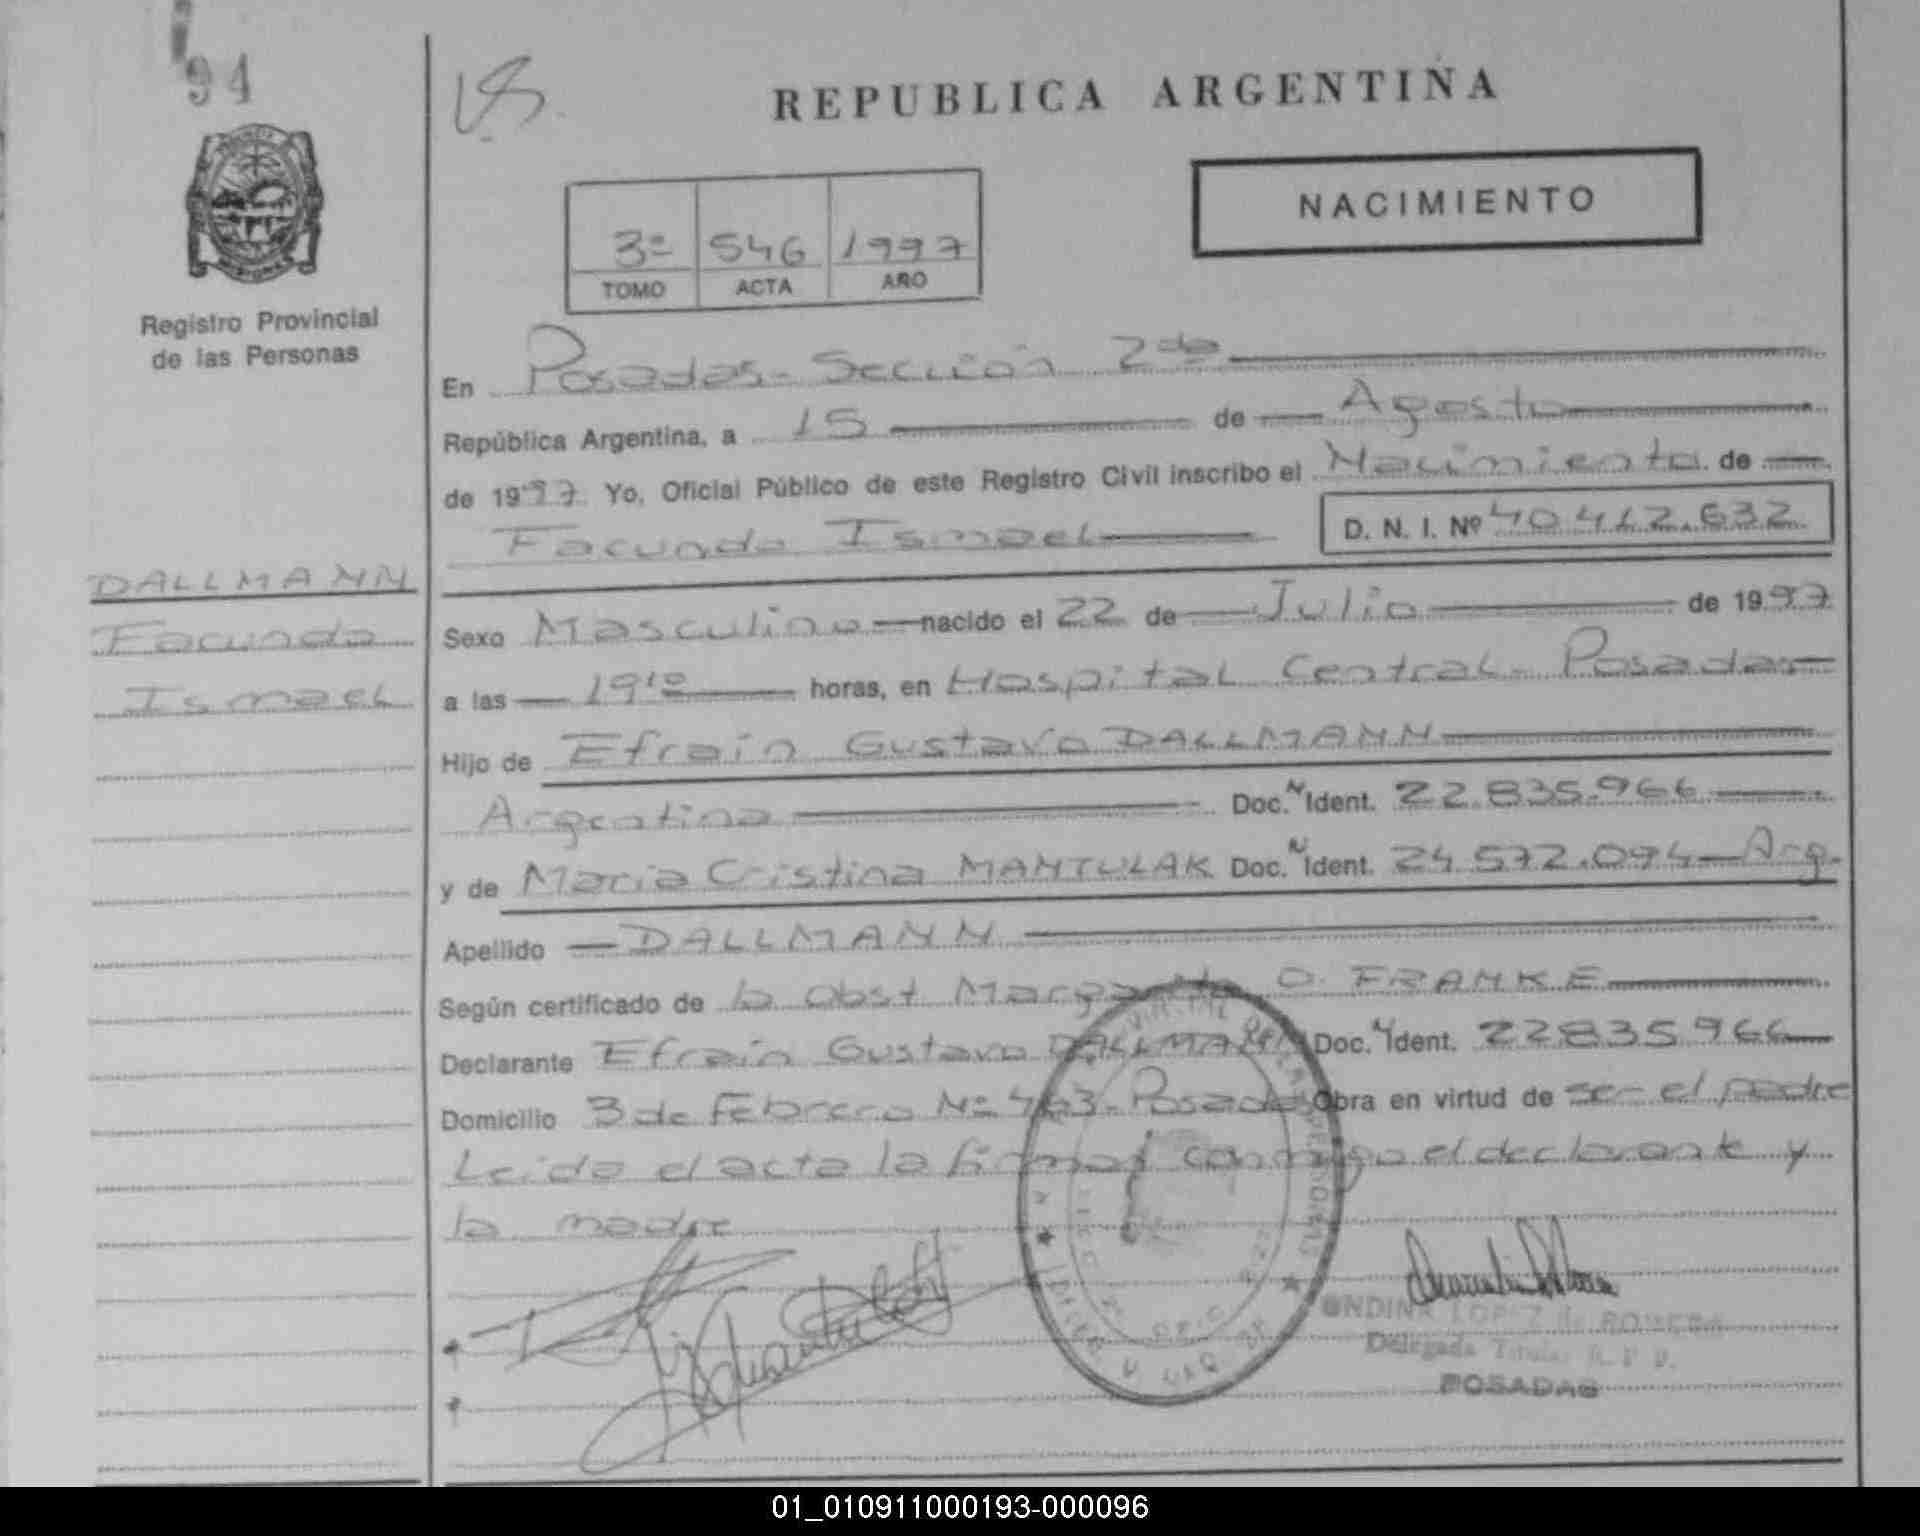 94
REPUBLICA ARGENTINA
NACIMIENTO
3º 546 1997
TOMO ACTA AÑO
Registro Provincial
de las Personas
En Posadas - Sección 2da
República Argentina, a 15 de Agosto
de 1997 Yo, Oficial Público de este Registro Civil inscribo el Nacimiento de
Facundo Ismael D. N. I. Nº 40.412.632
DALLMANN
Facundo
Ismael
Sexo Masculino nacido el 22 de Julio de 1997
a las 19¹⁰ horas, en Hospital Central - Posadas
Hijo de Efraín Gustavo DALLMANN
Argentino Doc. N Ident. 22.835.966
y de María Cristina MANTULAK Doc. N Ident. 24.572.094 - Arg.
Apellido DALLMANN
Según certificado de la obst Margarita O. FRANKE
Declarante Efraín Gustavo DALLMANN Doc. N Ident. 22835966
Domicilio 3 de Febrero Nº 463 - Posadas Obra en virtud de ser el padre
Leída el acta la firman conmigo el declarante y
la madre
ONDINA LOPEZ de ROMERO
Delegada Titular R. P. P.
POSADAS
01_010911000193-000096